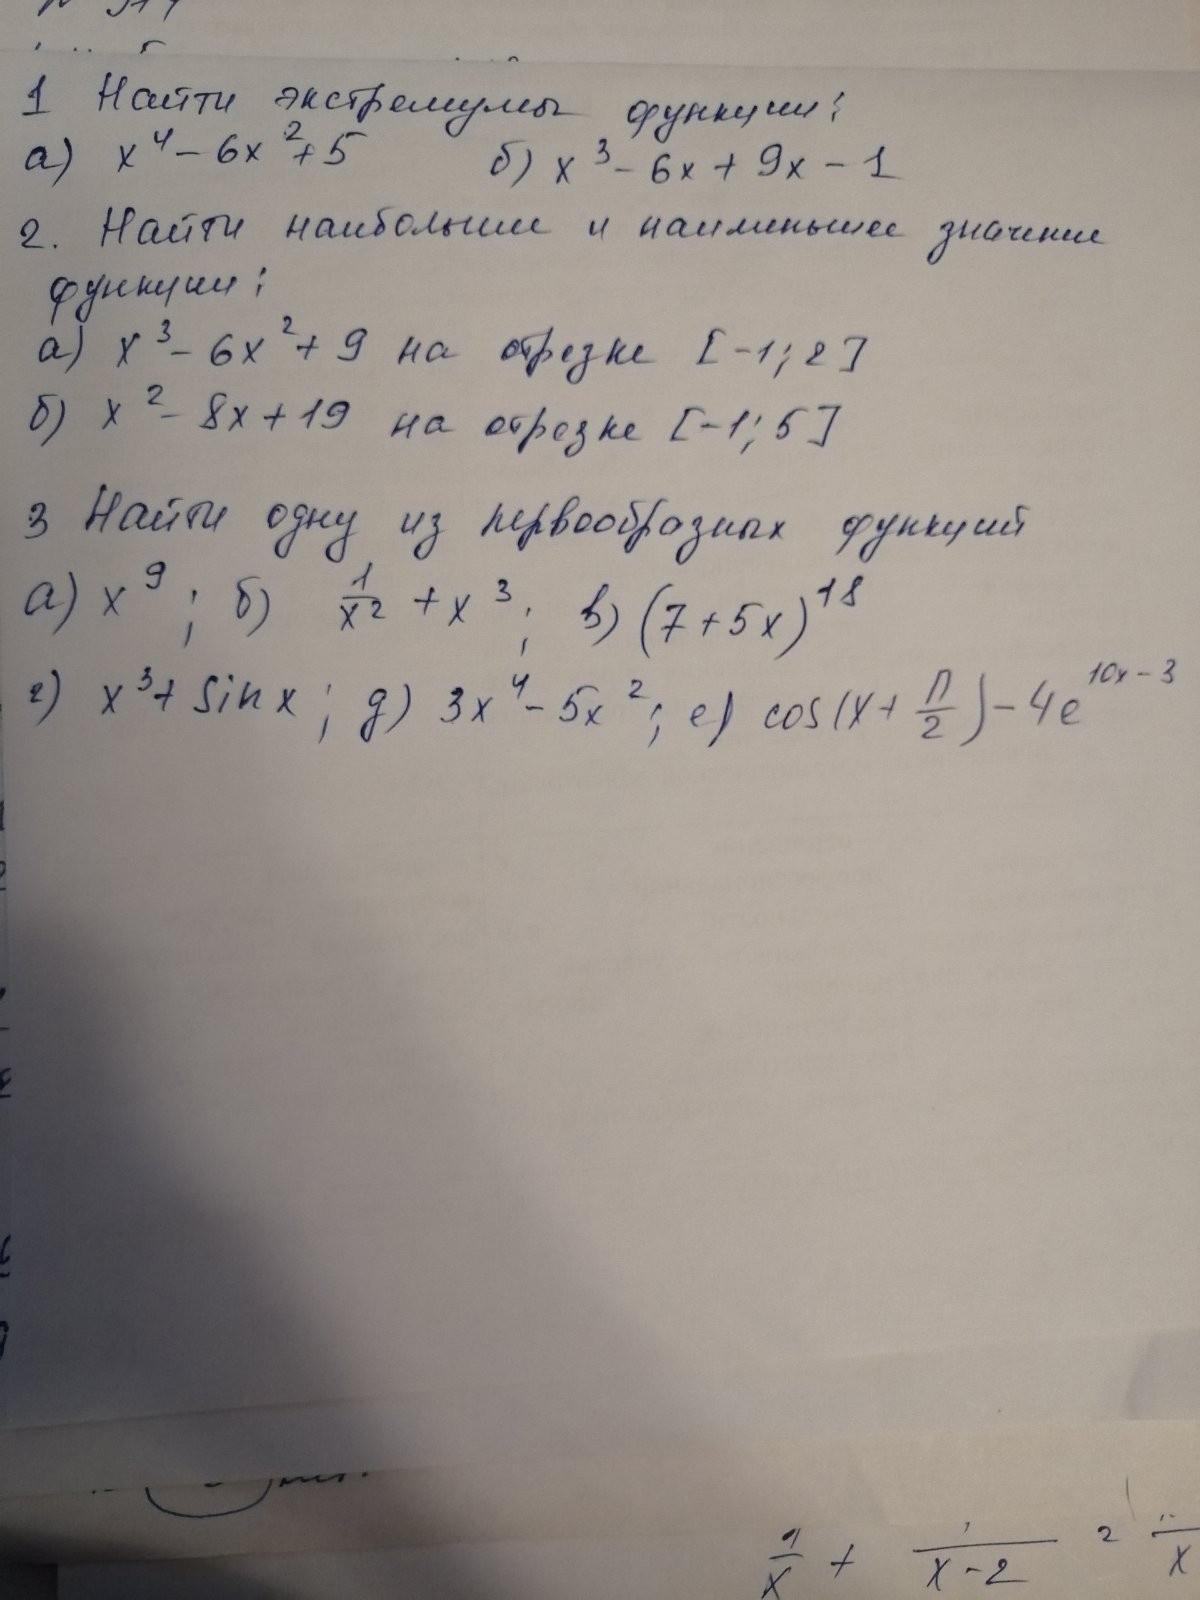 1 Найти экстремумы функции:
а) x⁴ - 6x² + 5 б) x³ - 6x + 9x - 1
2. Найти наибольшие и наименьшее значение
функции:
а) x³ - 6x² + 9 на отрезке [-1; 2]
б) x² - 8x + 19 на отрезке [-1; 5]
3 Найти одну из первообразных функций
а) x⁹; б) 1/x² + x³; в) (7 + 5x)¹⁸
г) x³ + sin x; д) 3x⁴ - 5x²; е) cos(x + π/2) - 4e^(10x - 3)
1/x + /(x - 2) = /x